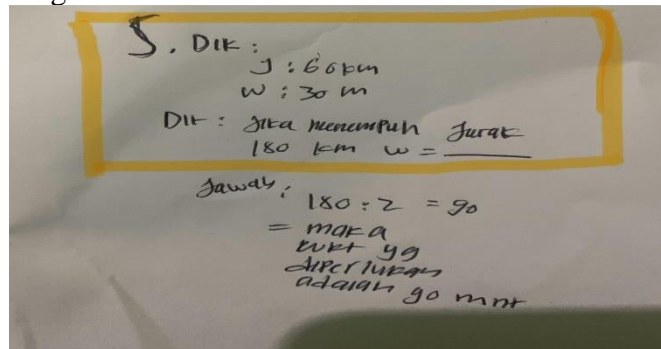 5. DIK :
J : 60 km
W : 30 m
DIK : Jika menempuh Jarak
180 km w = ______
Jawab :
180 : 2 = 90
= maka
wakt yg
diperlukan
adalah 90 mnt